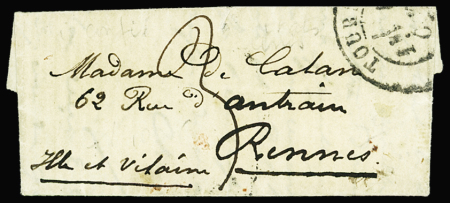 TOUR
Madame de Catan
62 Rue d'antrain
Rennes
Ille et Vilaine